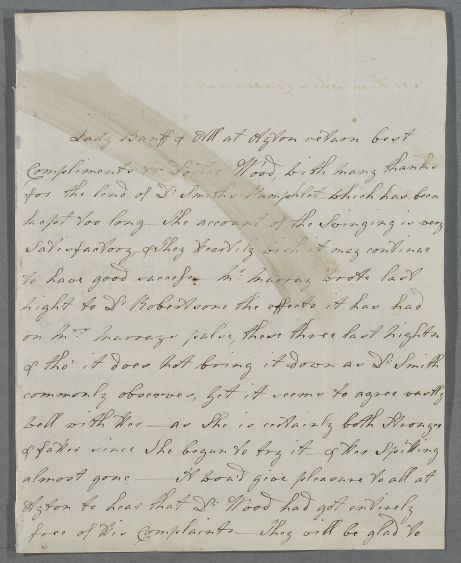 Lady Banff & All at Ayton return best
Compliments to Doctor Wood, with many thanks
for the lend of Dr Smiths Pamphlet which has been
kept too long — The account of the Swinging is very
Satisfactory, & they heartily wish it may continue
to have good success — Mr Murray wrote last
night to Dr Robertsone the effects it has had
on Mrs Murrays pulse, these three last nights
& tho' it does not bring it down as Dr Smith
commonly observes, yet it seems to agree vastly
well with Her — as She is certainly both Stronger
& fatter since She began to try it — & Her Spitting
almost gone — It woud give pleasure to all at
Ayton to hear that Dr Wood had got entirely
free of His Complaints — They will be glad to